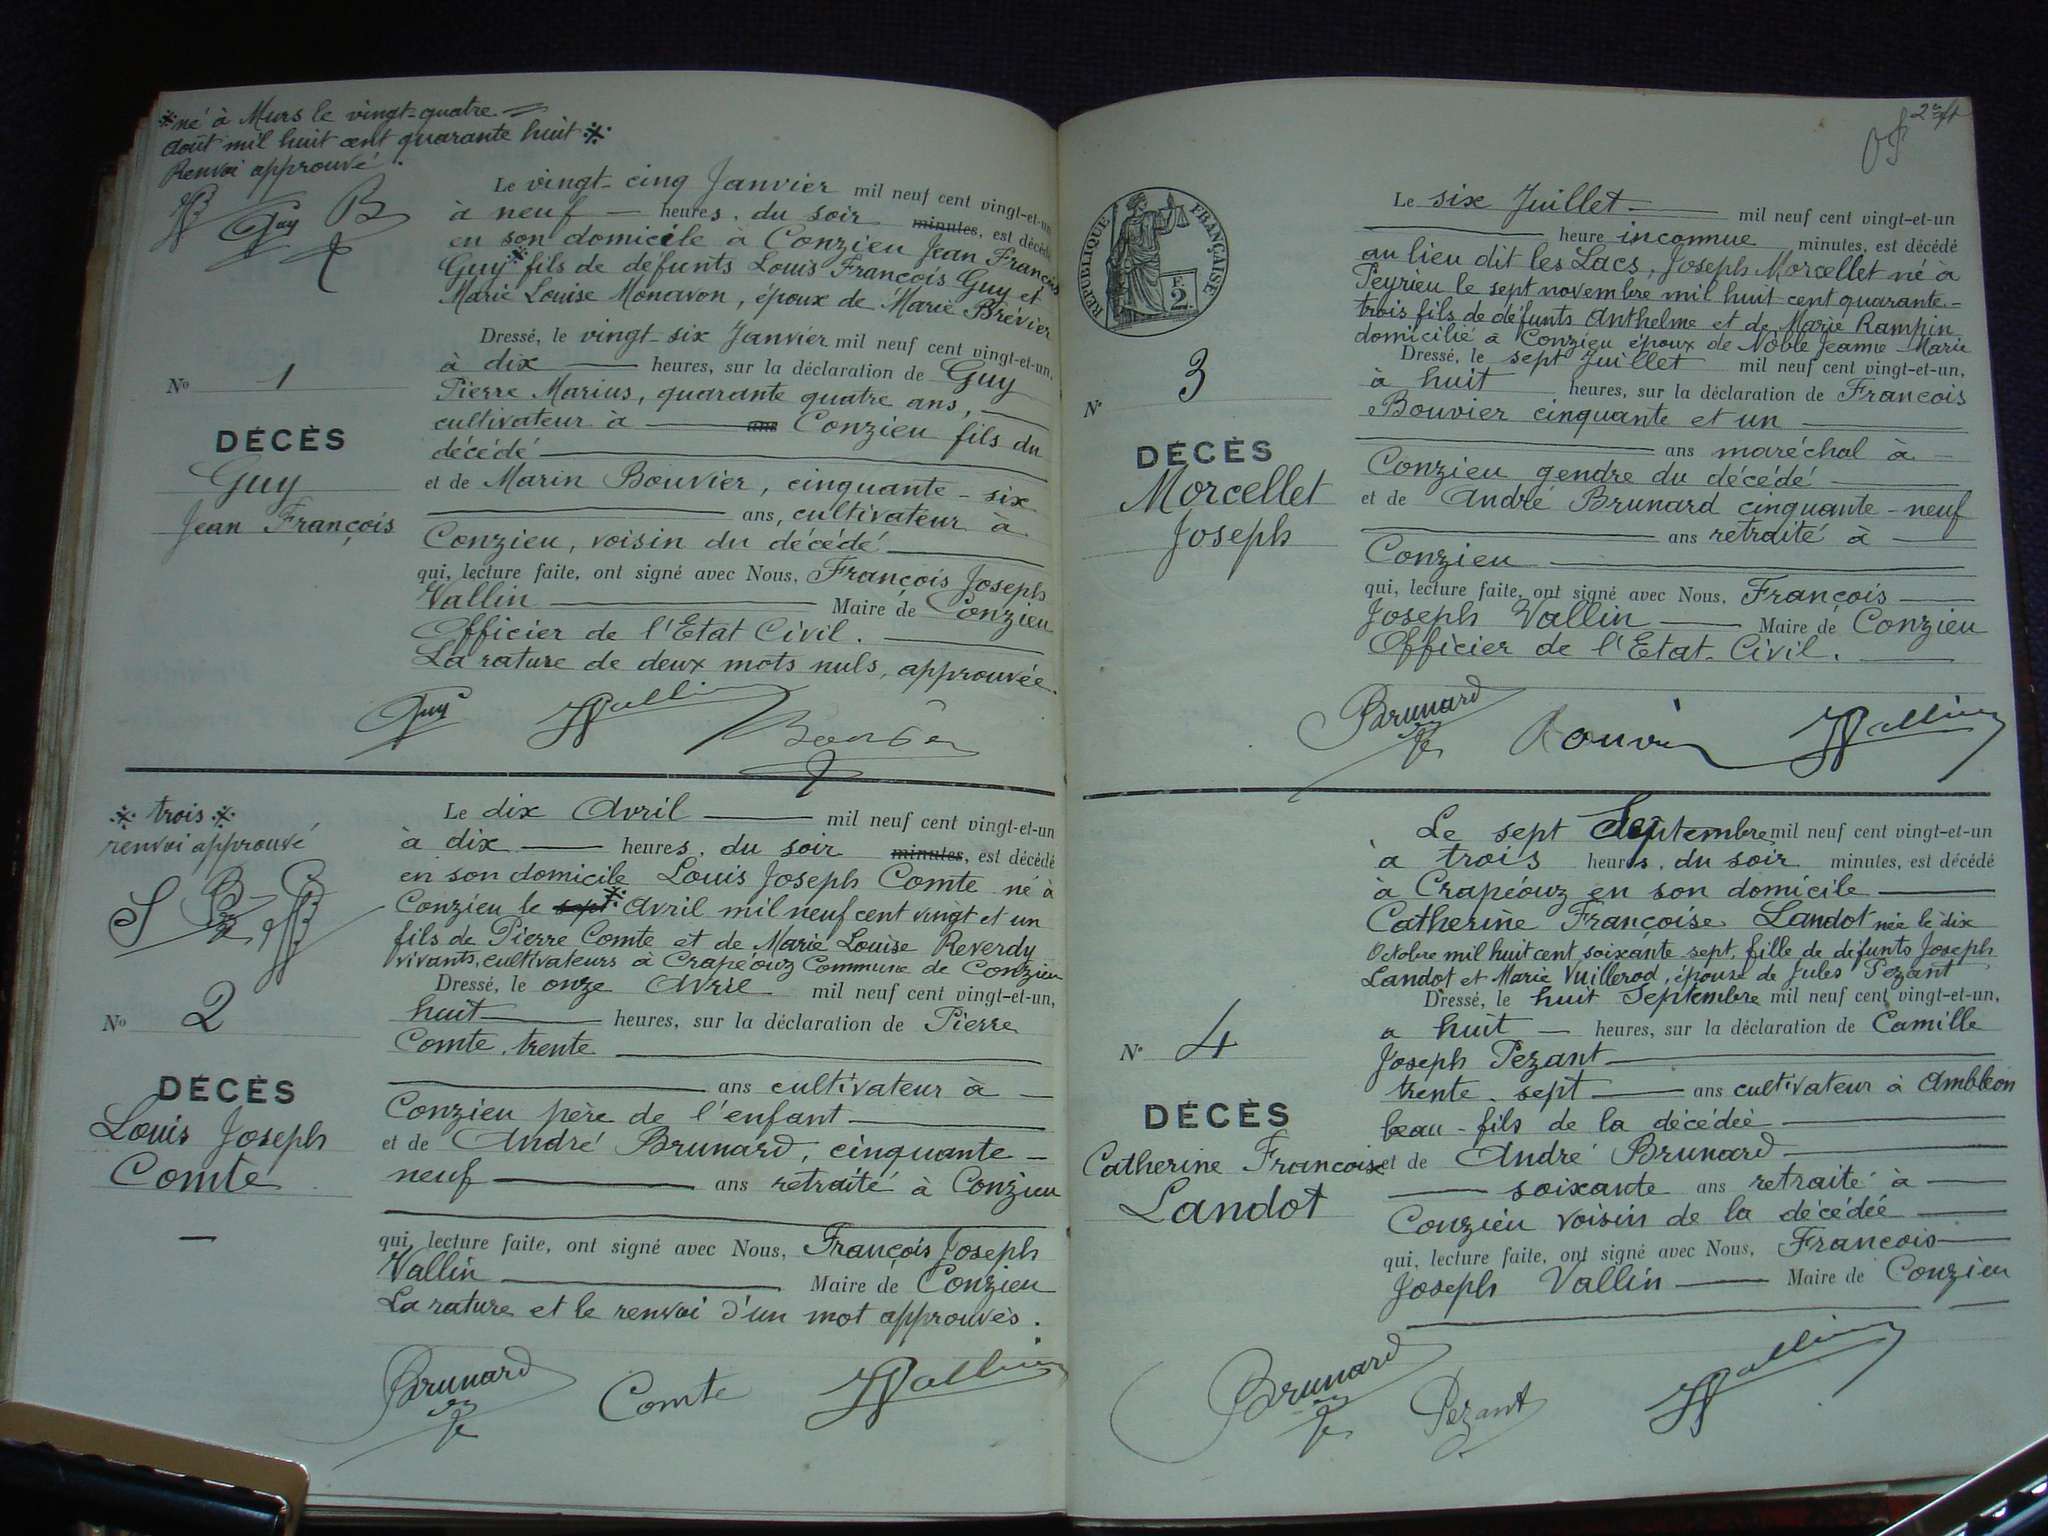 ※ né à Murs le vingt-quatre =
août mil huit cent quarante huit ※
Renvoi approuvé.
Guy B
Le vingt-cinq Janvier mil neuf cent vingt-et-un
à neuf — heures, du soir minutes, est décédé
en son domicile à Conzieu Jean François
Guy※ fils de défunts Louis François Guy et
Marie Louise Monavon, époux de Marie Brévier
Dressé, le vingt-six Janvier mil neuf cent vingt-et-un,
à dix — heures, sur la déclaration de Guy
Pierre Marius, quarante quatre ans, —
cultivateur à — ans Conzieu fils du
décédé —
et de Marin Bouvier, cinquante-six
— ans, cultivateur à
Conzieu, voisin du décédé —
qui, lecture faite, ont signé avec Nous, François Joseph
Vallin — Maire de Conzieu
Officier de l'Etat Civil. —
La rature de deux mots nuls, approuvée.
Guy Vallin
No 1
DÉCÈS
Guy
Jean François
※ trois ※
renvoi approuvé
Le dix Avril — mil neuf cent vingt-et-un
à dix — heures, du soir minutes, est décédé
en son domicile Louis Joseph Comte né à
Conzieu le sept※ Avril mil neuf cent vingt et un
fils de Pierre Comte et de Marie Louise Reverdy
vivants, cultivateurs à Crapéouz Commune de Conzieu
Dressé, le onze Avril mil neuf cent vingt-et-un,
huit — heures, sur la déclaration de Pierre
Comte, trente —
— ans cultivateur à —
Conzieu père de l'enfant —
et de André Brunard, cinquante-
neuf — ans retraité à Conzieu
—
qui, lecture faite, ont signé avec Nous, François Joseph
Vallin — Maire de Conzieu
La rature et le renvoi d'un mot approuvés.
Brunard Comte Vallin
No 2
DÉCÈS
Louis Joseph
Comte
—
RÉPUBLIQUE FRANÇAISE
F.
2.
Le six Juillet — mil neuf cent vingt-et-un
— heure inconnue minutes, est décédé
au lieu dit les Lacs, Joseph Morcellet né à
Peyrieu le sept novembre mil huit cent quarante-
trois fils de défunts Anthelme et de Marie Rampin
domicilié à Conzieu époux de Noble Jeanne Marie
Dressé, le sept Juillet mil neuf cent vingt-et-un,
à huit heures, sur la déclaration de François
Bouvier cinquante et un —
— ans maréchal à —
Conzieu gendre du décédé —
et de André Brunard cinquante-neuf
— ans retraité à —
Conzieu —
qui, lecture faite, ont signé avec Nous, François —
Joseph Vallin — Maire de Conzieu
Officier de l'Etat-Civil. —
Brunard Bouvier Vallin
N° 3
DÉCÈS
Morcellet
Joseph
Le sept Septembre mil neuf cent vingt-et-un
à trois heures, du soir minutes, est décédé
à Crapéouz en son domicile —
Catherine Françoise Landot née le dix
Octobre mil huit cent soixante-sept, fille de défunts Joseph
Landot et Marie Vuillerod, épouse de Jules Pezant
Dressé, le huit Septembre mil neuf cent vingt-et-un,
à huit — heures, sur la déclaration de Camille
Joseph Pezant —
trente-sept — ans cultivateur à Ambléon
beau-fils de la décédée —
et de André Brunard —
— soixante ans retraité à —
Conzieu voisin de la décédée —
qui, lecture faite, ont signé avec Nous, François —
Joseph Vallin — Maire de Conzieu
—
Brunard Pezant Vallin
N° 4
DÉCÈS
Catherine Françoise
Landot